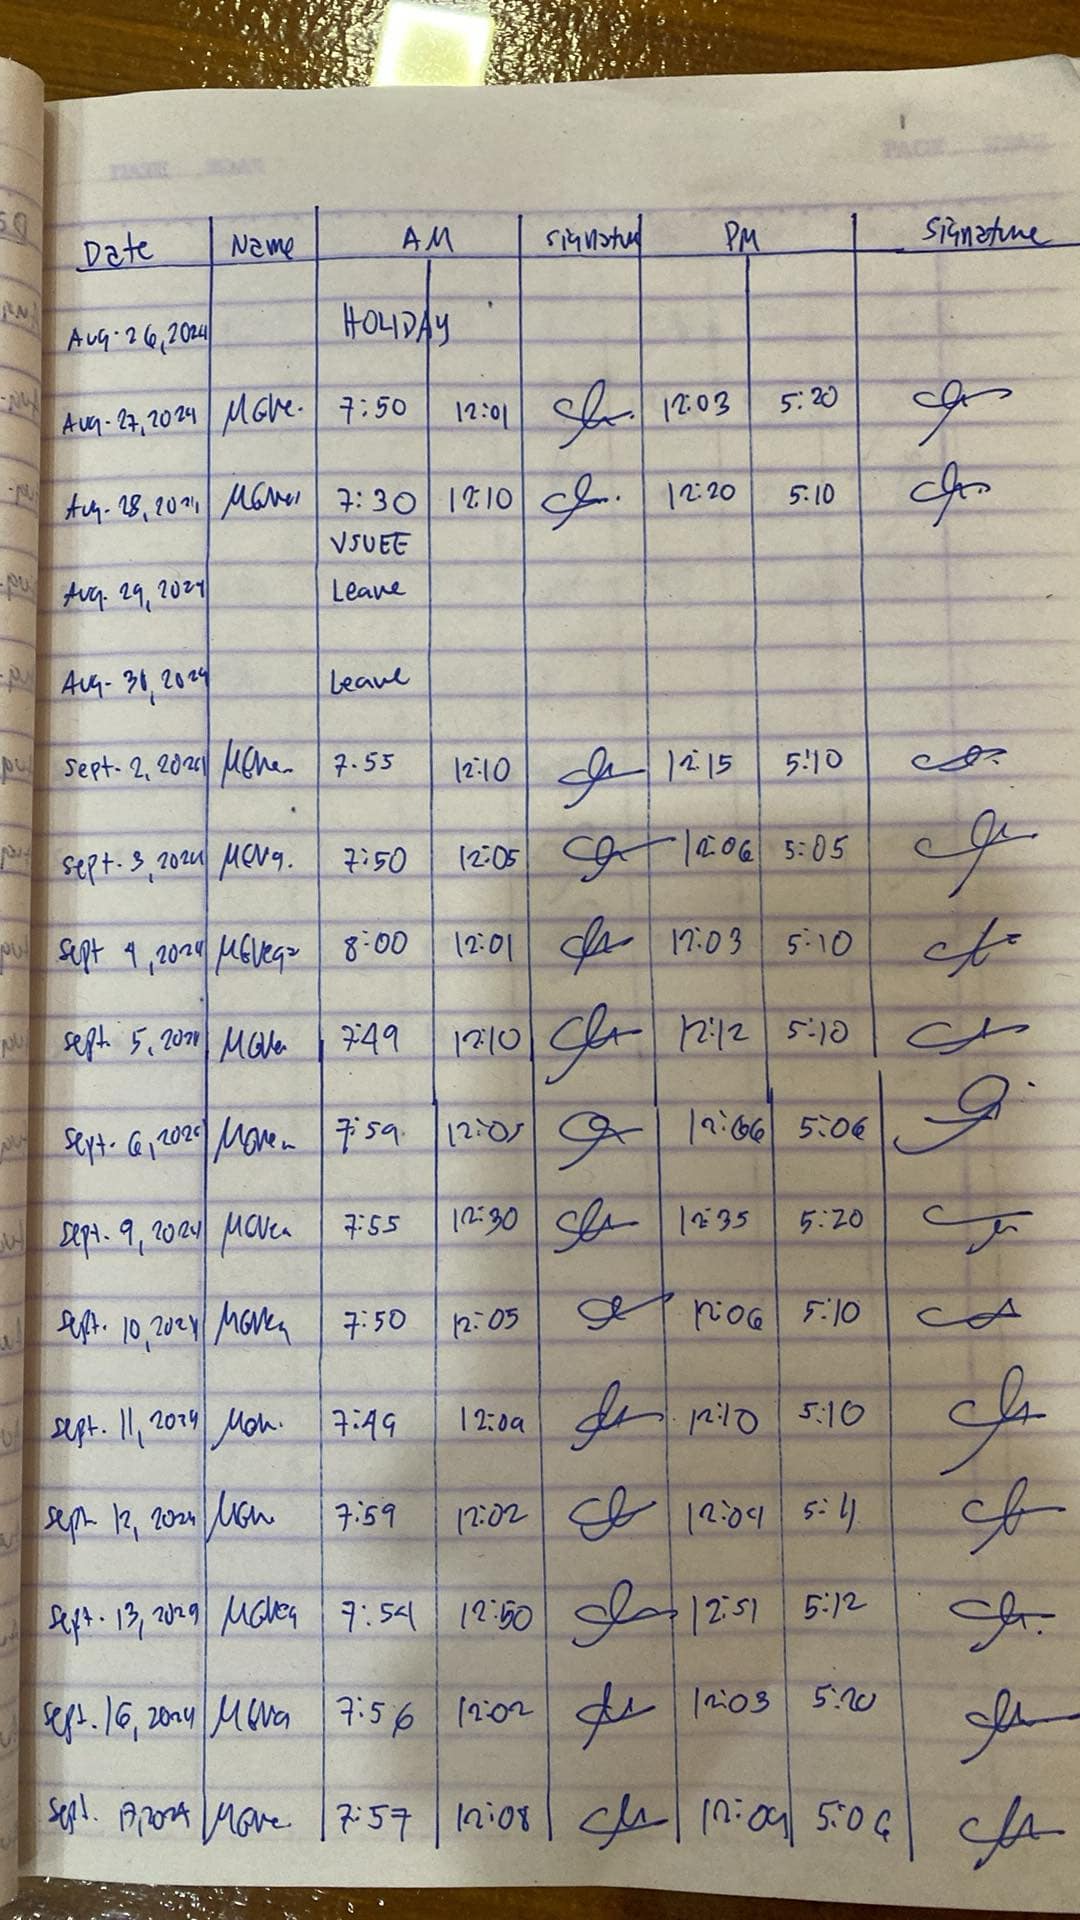 Date Name AM signature PM signature
Aug. 26, 2024 HOLIDAY
Aug. 27, 2024 MGVe. 7:50 12:01 12:03 5:20
Aug. 28, 2024 7:30 12:10 12:20 5:10
VSUEE
Aug. 29, 2024 Leave
Aug. 30, 2024 Leave
Sept. 2, 2024 7.55 12:10 12:15 5:10
Sept. 3, 2024 7:50 12:05 12:06 5:05
Sept 4, 2024 MGVega 8:00 12:01 12:03 5:10
Sept. 5, 2024 7:49 12:10 12:12 5:10
Sept. 6, 2024 7:59 12:05 12:06 5:06
Sept. 9, 2024 7:55 12:30 12:35 5:20
Sept. 10, 2024 7:50 12:05 12:06 5:10
Sept. 11, 2024 7:49 12:09 12:10 5:10
Sept. 12, 2024 7:59 12:02 12:04
Sept. 13, 2024 MGVeg 7:54 12:50 12:51 5:12
Sept. 16, 2024 7:56 12:02 12:03 5:20
Sept. 17, 2024 7:57 12:08 12:09 5:06